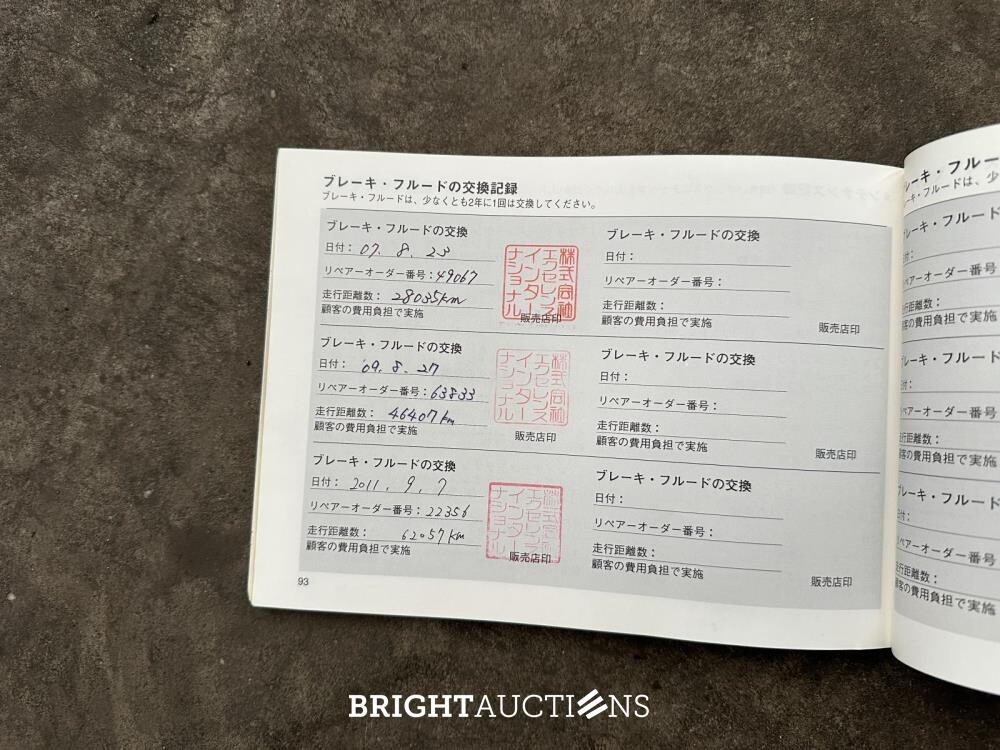 ブレーキ・フルードの交換記録
ブレーキ・フルードは、少なくとも2年に1回は交換してください。
ブレーキ・フルードの交換
日付：07. 8. 23
リペアーオーダー番号：49067
走行距離数：28035km
顧客の費用負担で実施
株式会社エクセレンスインターナショナル
販売店印
ブレーキ・フルードの交換
日付：'09. 8. 27
リペアーオーダー番号：63833
走行距離数：46407km
顧客の費用負担で実施
株式会社エクセレンスインターナショナル
販売店印
ブレーキ・フルードの交換
日付：2011. 9. 7
リペアーオーダー番号：22356
走行距離数：62057km
顧客の費用負担で実施
株式会社エクセレンスインターナショナル
販売店印
93
ブレーキ・フルードの交換
日付：
リペアーオーダー番号：
走行距離数：
顧客の費用負担で実施
販売店印
ブレーキ・フルードの交換
日付：
リペアーオーダー番号：
走行距離数：
顧客の費用負担で実施
販売店印
ブレーキ・フルードの交換
日付：
リペアーオーダー番号：
走行距離数：
顧客の費用負担で実施
販売店印
レーキ・フルー
レーキ・フルードは、少
ブレーキ・フルード
日付：
リペアーオーダー番号
走行距離数：
顧客の費用負担で実施
ブレーキ・フルード
日付：
リペアーオーダー番号
走行距離数：
顧客の費用負担で実施
ブレーキ・フルード
日付：
リペアーオーダー番号
走行距離数：
顧客の費用負担で実施
BRIGHTAUCTIONS